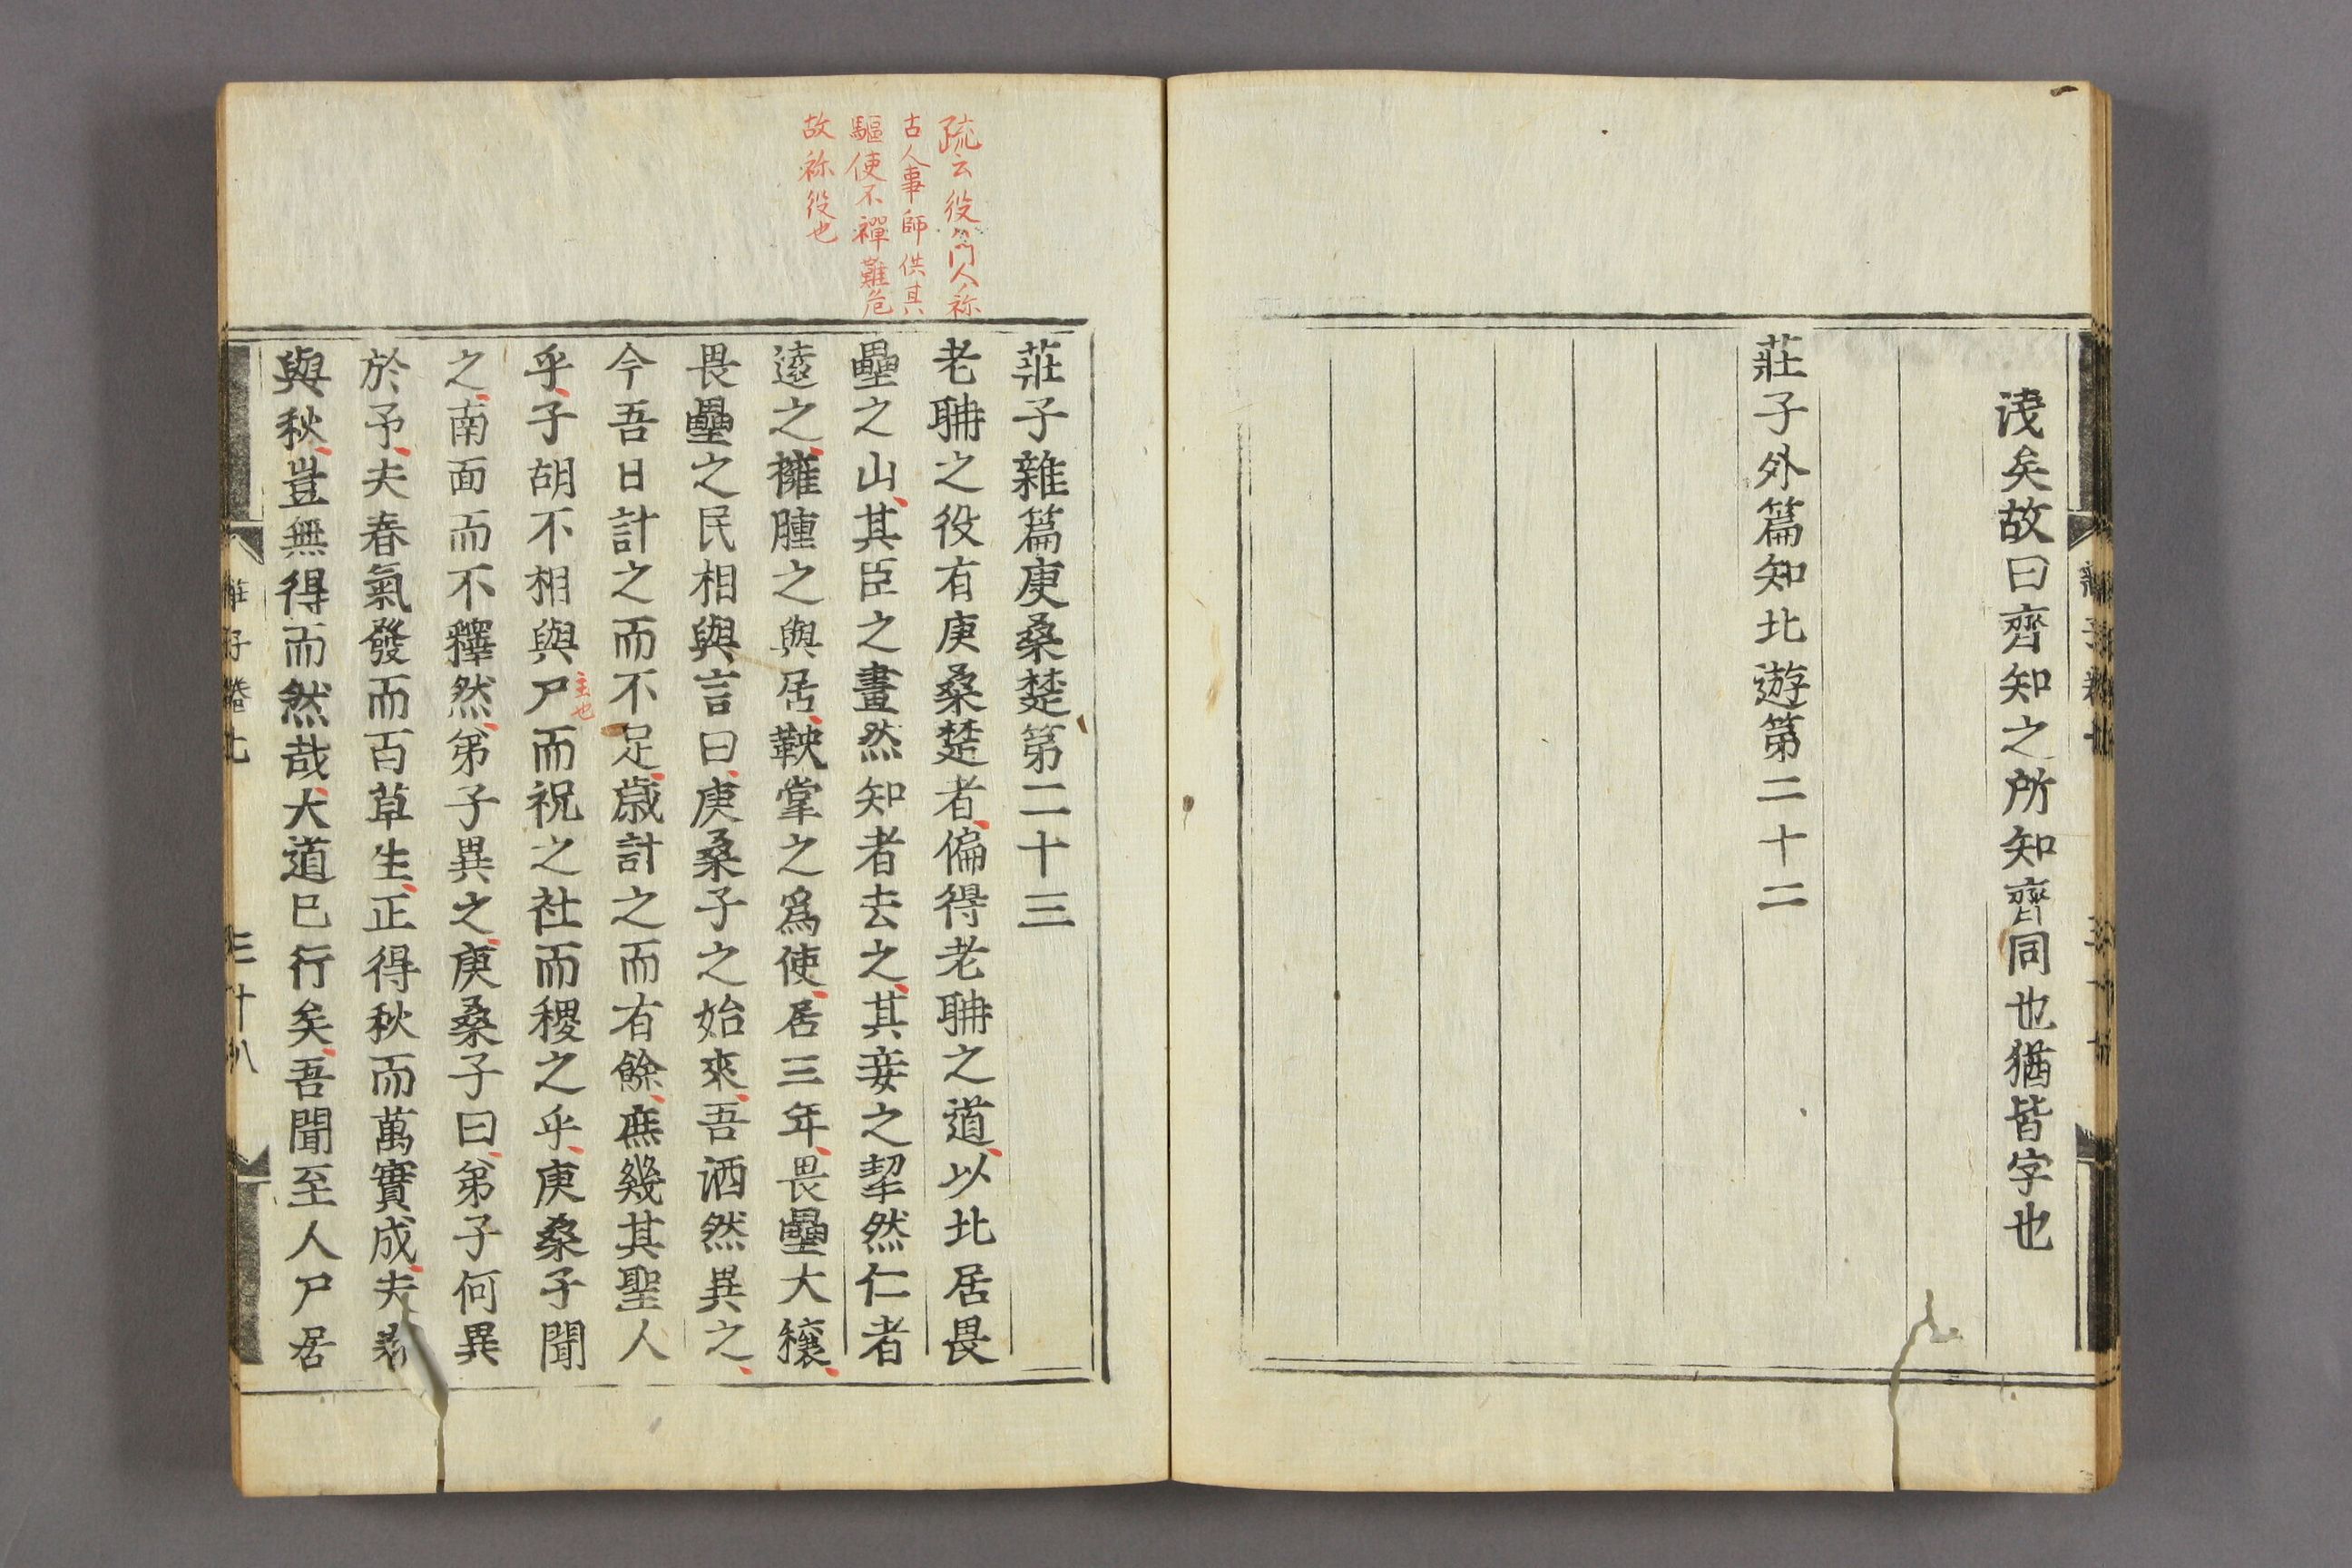 淺矣故曰齊知之所知齊同也猶皆字也
莊子外篇知北遊第二十二
疏云役門人称
古人事師供其
驅使不禪艱危
故称役也
莊子雜篇庚桑楚第二十三
老聃之役有庚桑楚者偏得老聃之道以北居畏
壘之山其臣之畫然知者去之其妾之挈然仁者
遠之擁腫之與居鞅掌之爲使居三年畏壘大穰
畏壘之民相與言曰庚桑子之始來吾洒然異之
今吾日計之而不足歲計之而有餘庶幾其聖人
乎子胡不相與尸而祝之社而稷之乎庚桑子聞
主也
之南面而不釋然弟子異之庚桑子曰弟子何異
於予夫春氣發而百草生正得秋而萬實成夫春
與秋豈無得而然哉大道已行矣吾聞至人尸居